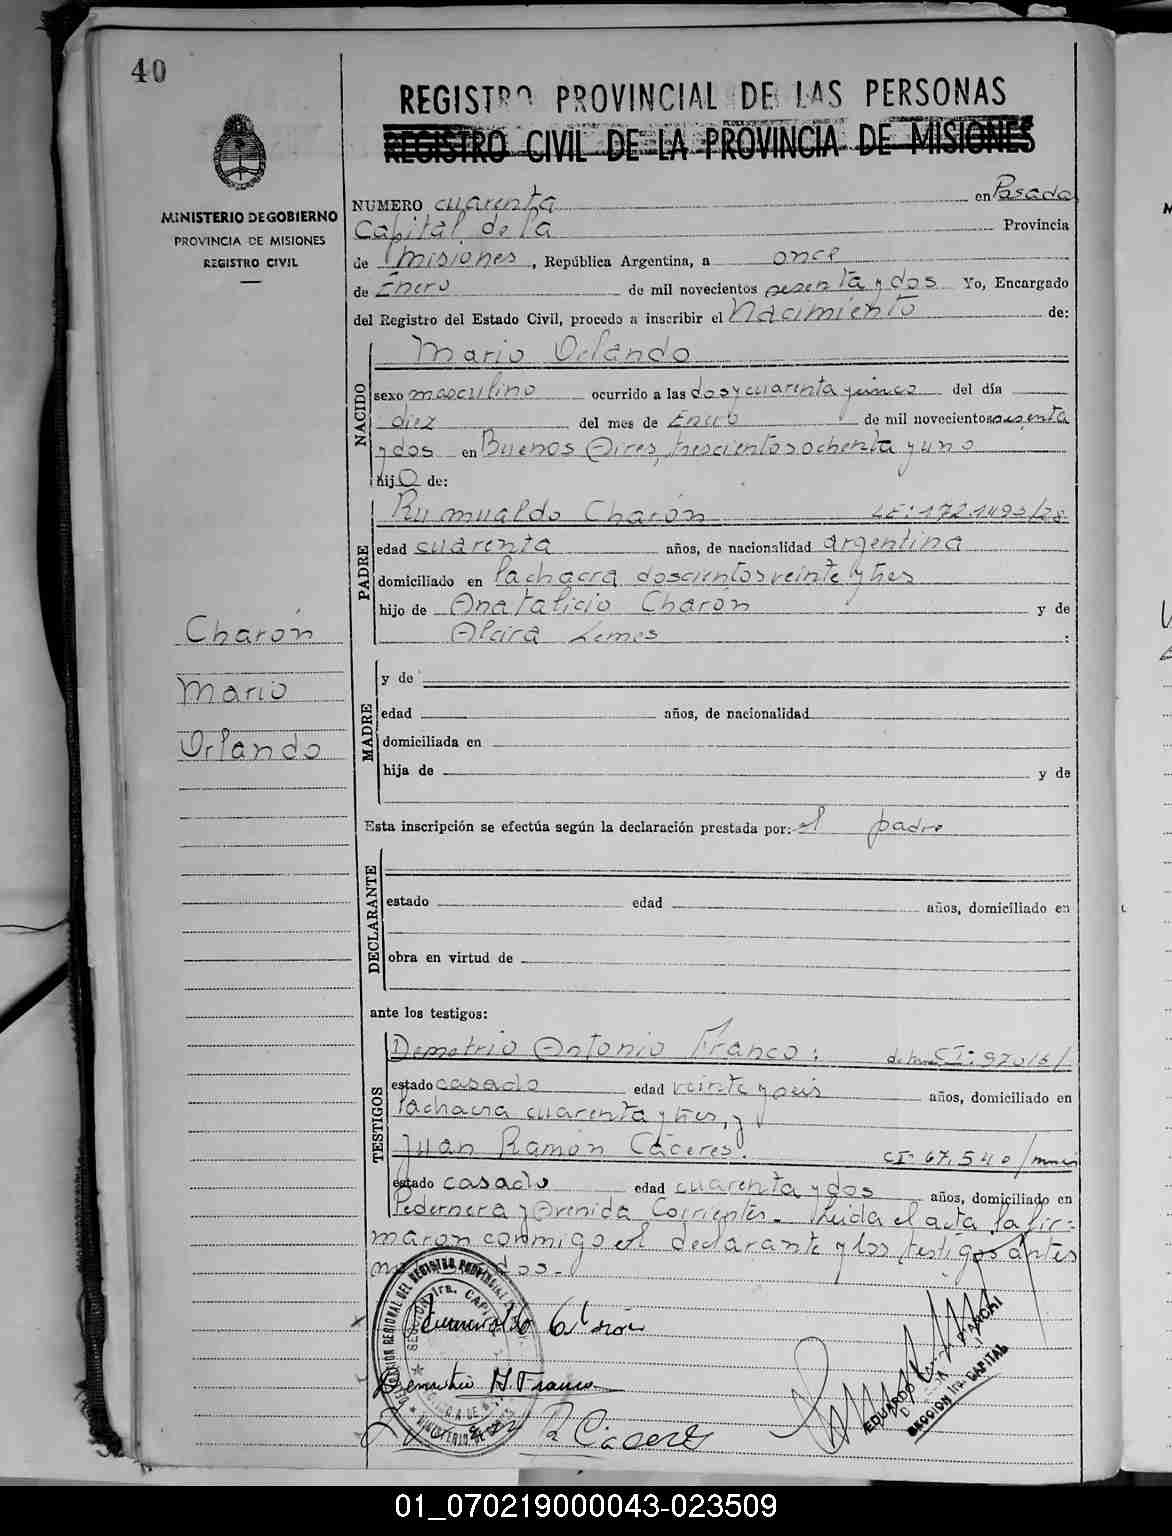 40
REGISTRO PROVINCIAL DE LAS PERSONAS
REGISTRO CIVIL DE LA PROVINCIA DE MISIONES
MINISTERIO DE GOBIERNO
PROVINCIA DE MISIONES
REGISTRO CIVIL
NUMERO cuarenta en Posadas
Capital de la Provincia
de Misiones, República Argentina, a once
de Enero de mil novecientos sesenta y dos Yo, Encargado
del Registro del Estado Civil, procedo a inscribir el Nacimiento de:
NACIDO
Mario Orlando
sexo masculino ocurrido a las dos y cuarenta y cinco del día
diez del mes de Enero de mil novecientos sesenta
y dos en Buenos Aires, trescientos ochenta y uno
hijo de:
PADRE
Rumualdo Charón LE:
edad cuarenta años, de nacionalidad argentina
domiciliado en la chacra doscientos veinte y tres
hijo de Anatalicio Charón y de
Alcira Lemes :
Charón
Mario
Orlando
MADRE
y de
edad años, de nacionalidad
domiciliada en
hija de y de
Esta inscripción se efectúa según la declaración prestada por: el padre
DECLARANTE
estado edad años, domiciliado en
obra en virtud de
ante los testigos:
TESTIGOS
Demetrio Antonio Franco: CI:
estado casado edad veinte y seis años, domiciliado en
la chacra cuarenta y tres, y
Juan Ramón Cáceres. CI- 67.540/
estado casado edad cuarenta y dos años, domiciliado en
Pedernera y Avenida Corrientes. Leida el acta la fir-
maron conmigo el declarante y los testigos antes
Demetrio A. Franco
R Cáceres
EDUARDO
SECCION 1ra. CAPITAL
01_070219000043-023509